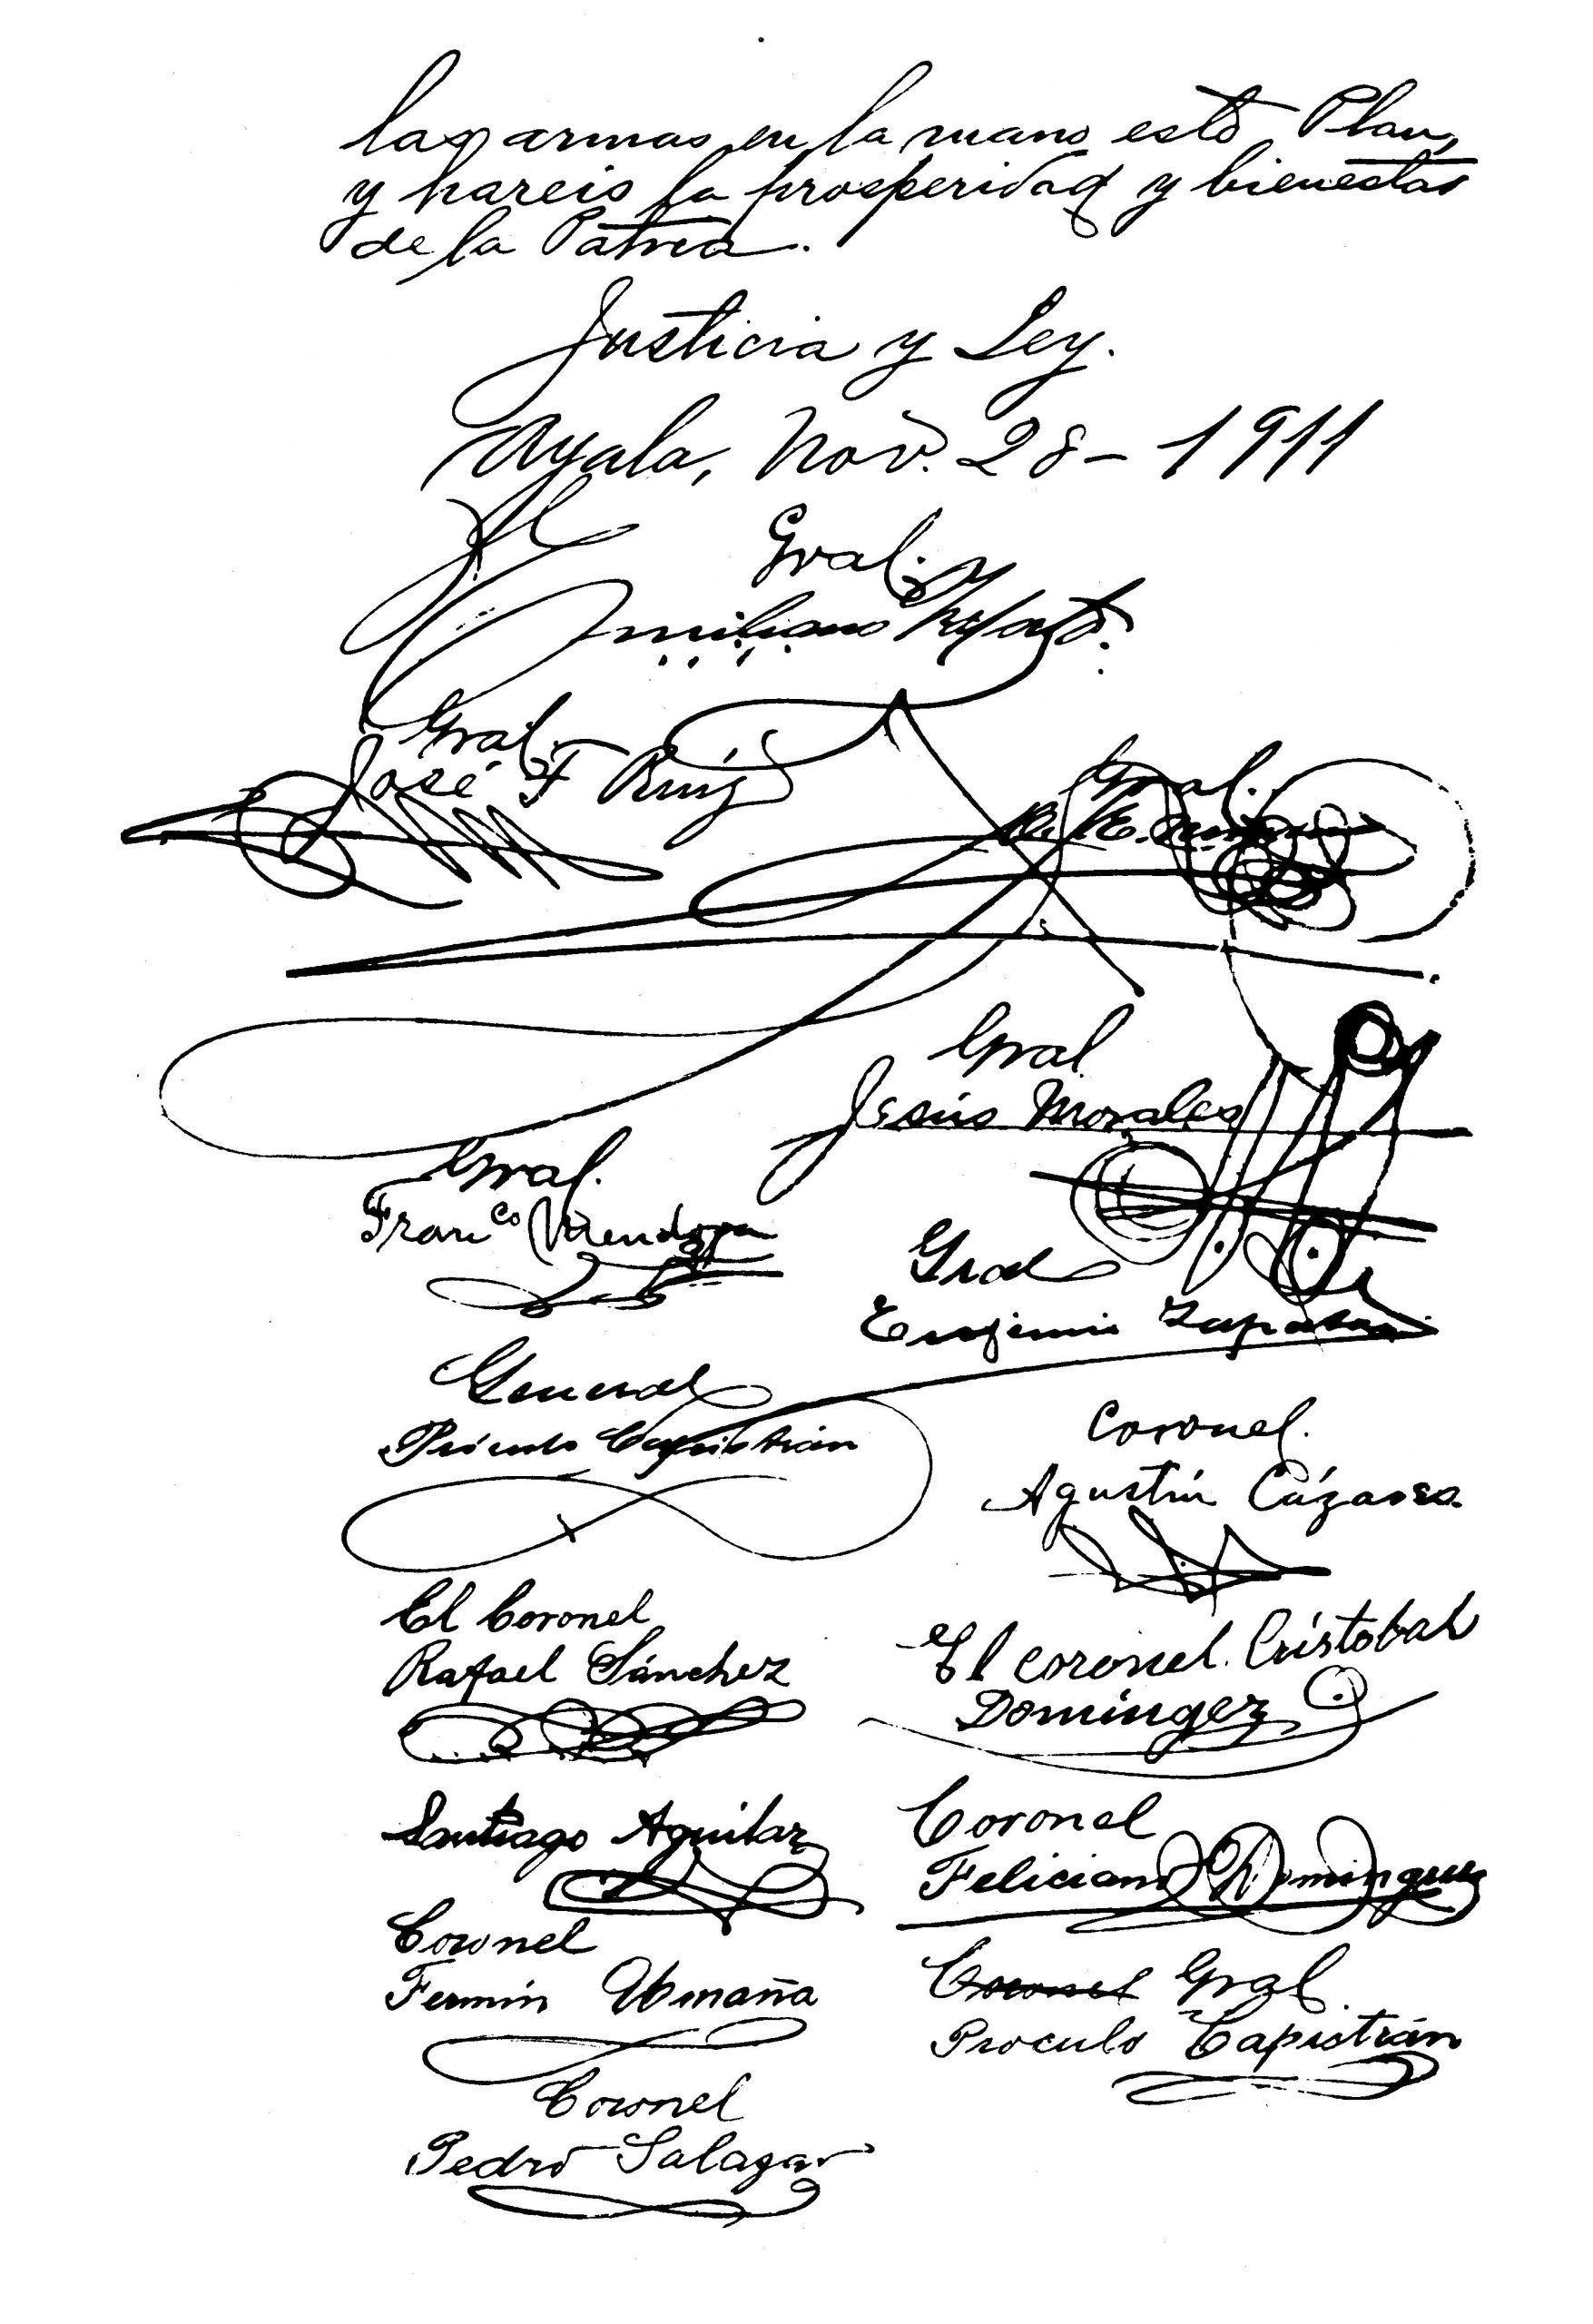 las armas en la mano este Plan,
y hareis la prosperidad y bienestar
de la Patria.
Justicia y Ley.
Ayala, Nov. 28-1911
Gral.
Emiliano Zapata.
Gral.
José F Ruiz
Gral.
O. E. Montaño
Gral
Jesús Morales
Gral.
Franco Mendoza
Gral
Eugenio Zapata
General
Próculo Capistrán
Coronel.
Agustín Cázares
El Coronel
Rafael Sánchez
El coronel. Cristobal
Domíngez
Santiago Aguilar
Coronel
Feliciano Dominguez
Coronel
Fermín Omaña
Coronel Gral.
Proculo Capistrán
Coronel
Pedro Salazar